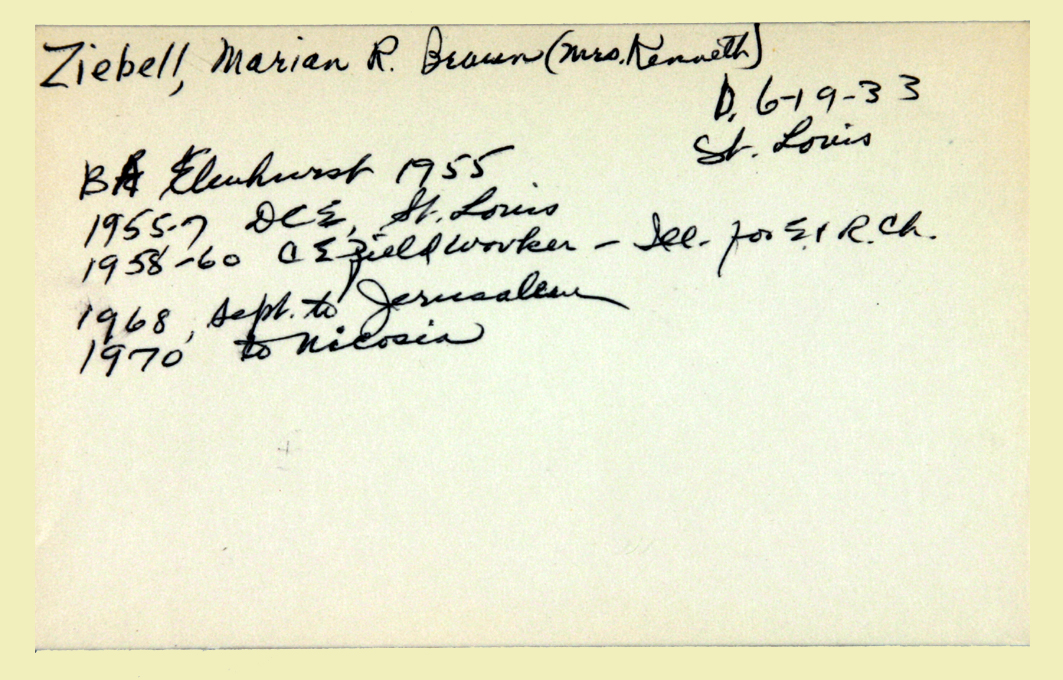 Ziebell, Marian R. Braun (Mrs. Kenneth)
D. 6-19-33
St. Louis
BA Elmhurst 1955
1955-7 DCE, St. Louis
1958-60 CE field worker - Ill. for E. & R. Ch.
1968, Sept. to Jerusalem
1970 to Nicosia